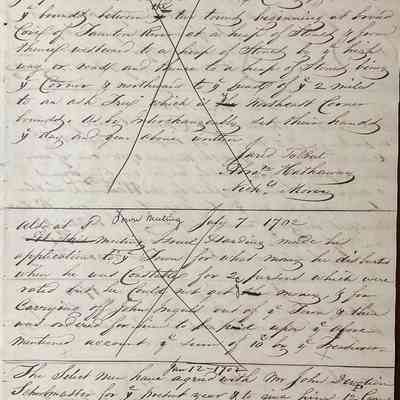 yᵉ bounds between the two towns beginning at
of Taunton River at a heap of Stones & from
thence westward to a heap of Stones by yᵉ
way or road and thence to a heap of Stones being
yᵉ Corner & northward to yᵉ of yᵉ 2 miles
to an ash tree which is yᵉ Northeast Corner
bounds &c. Interchangeably set their hands
yᵉ day and year above written
Jared Talbut
Abraᵐ Hathaway
Nichˢ Morey
Also at Town Meeting July 7 - 1702
At this Meeting Israel made his
application to yᵉ Town for what money he disbursted
when he was Constable for 2 which were
voted but he could not get the money & for
Carrying off John out of yᵉ Town & there
was ordered for him to be paid upon yᵉ above
mentioned account yᵉ sum of
Jan 12 - 1702
The Select Men have agreed with Mr John
Schoolmaster for yᵉ present year &